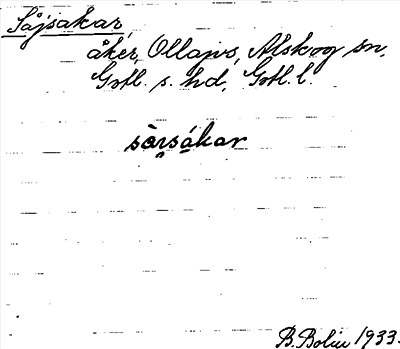 Såjsakar,
åker, Ollajvs, Alskog sn,
Gotl. s. hd, Gotl. l.
sàrsákar
B. Bolin 1933.